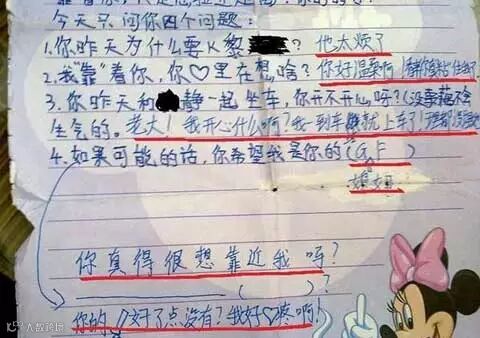 今天只问你四个问题：
1.你昨天为什么要K黎？他太烦了
2.我“靠”着你，你♡里在想啥？你好温柔啊！
3.你昨天和静一起坐车，你开不开心呀？(没事葩不会
生气的。老大！我开心什么啊？我一到车就上车了！
4.如果可能的话，你希望我是你的(G.F)
你真得很想靠近我吗？
( )？
你的 好了点没有？我好心疼啊！